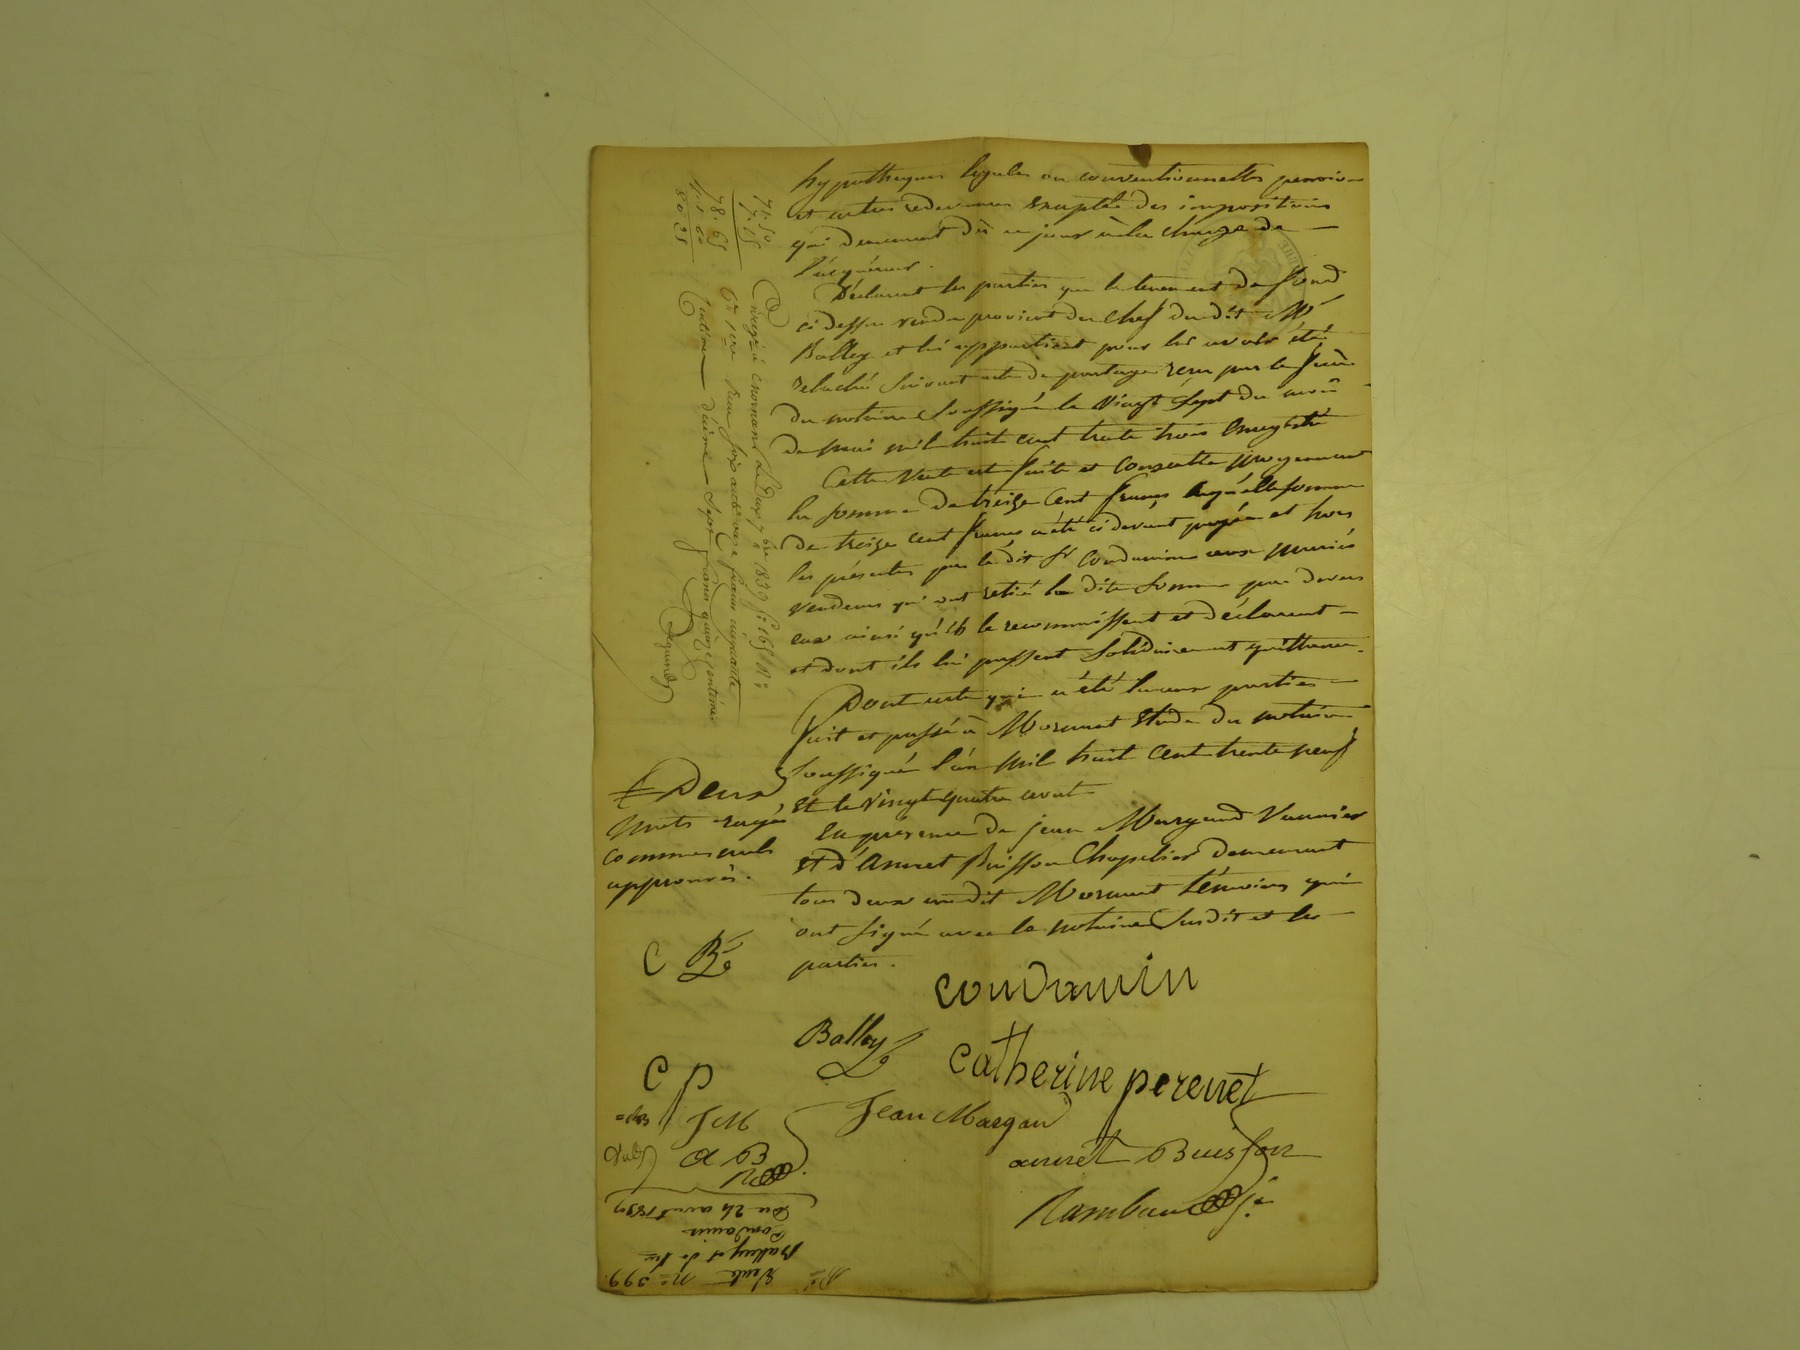 hypotheques legales ou conventionnelles pension
et autres redevances Excepté des impositions
qui demeurent dès ce jour à la charge de
l'acquéreur.
Déclarent les parties que le tenement de fond
ci dessus vendu provient du chef du dit Mr
Balley et lui appartient pour lui avoir été
relaché suivant acte de partage reçu par le frère
du notaire soussigné le vingt sept du mois
de mai mil huit cent trente trois enregistré
Cette vente est faite et consentie moyennant
la somme de treize Cent francs laquelle somme
de treize cent francs a été ci devant payée et hors
les présentes par le dit Sr Condamin aux mariés
vendeurs qui ont retiré la dite somme par devers
eux ainsi qu'ils le reconnaissent et déclarent
et dont ils lui passent solidairement quittance.
Dont acte qui a été lu aux parties
fait et passé à Mornant Etude du notaire
soussigné l'an mil huit Cent trente neuf
et le vingt quatre aout
En présence de jean Margand Vannier
et d'Annet Buisson Chapelier demeurant
tous deux au dit Mornant témoins qui
ont signé avec le notaire susdit et les
parties.
Deux
mots rayés
comme nuls
approuvés.
C Bé
condamin
Balley
C P
catherine perenet
J M
Jean Margand
A B
annet Buisson
R
Rambaud je
71.50
7.15
78.65
80.25
Enregé à Mornant Le Deux 7bre 1839 fo 165
Reçu soixante onze francs cinquante
centimes décime Sept francs quinze centimes
Vente no 399
Balley et sa fme
Condamin
Du 24 aout 1839